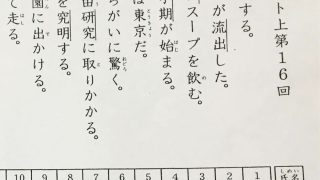 ト上第16回
する。
が流出した。
スープを飲む。
学期が始まる。
は東京だ。
ちがいに驚く。
宙研究に取りかかる。
を究明する。
園に出かける。
て走る。
氏名
しめい
1
2
3
4
5
6
7
8
9
10